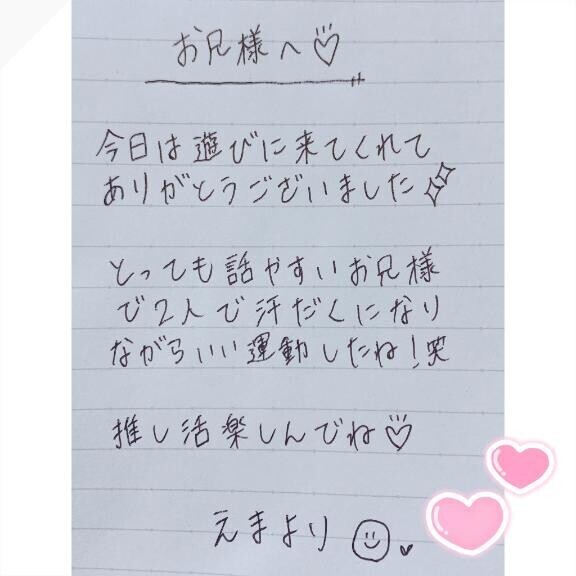 お兄様へ♡
今日は遊びに来てくれて
ありがとうございました✨
とっても話やすいお兄様
で2人で汗だくになり
ながらいい運動したね!笑
推し活楽しんでね♡
えまより☺♥